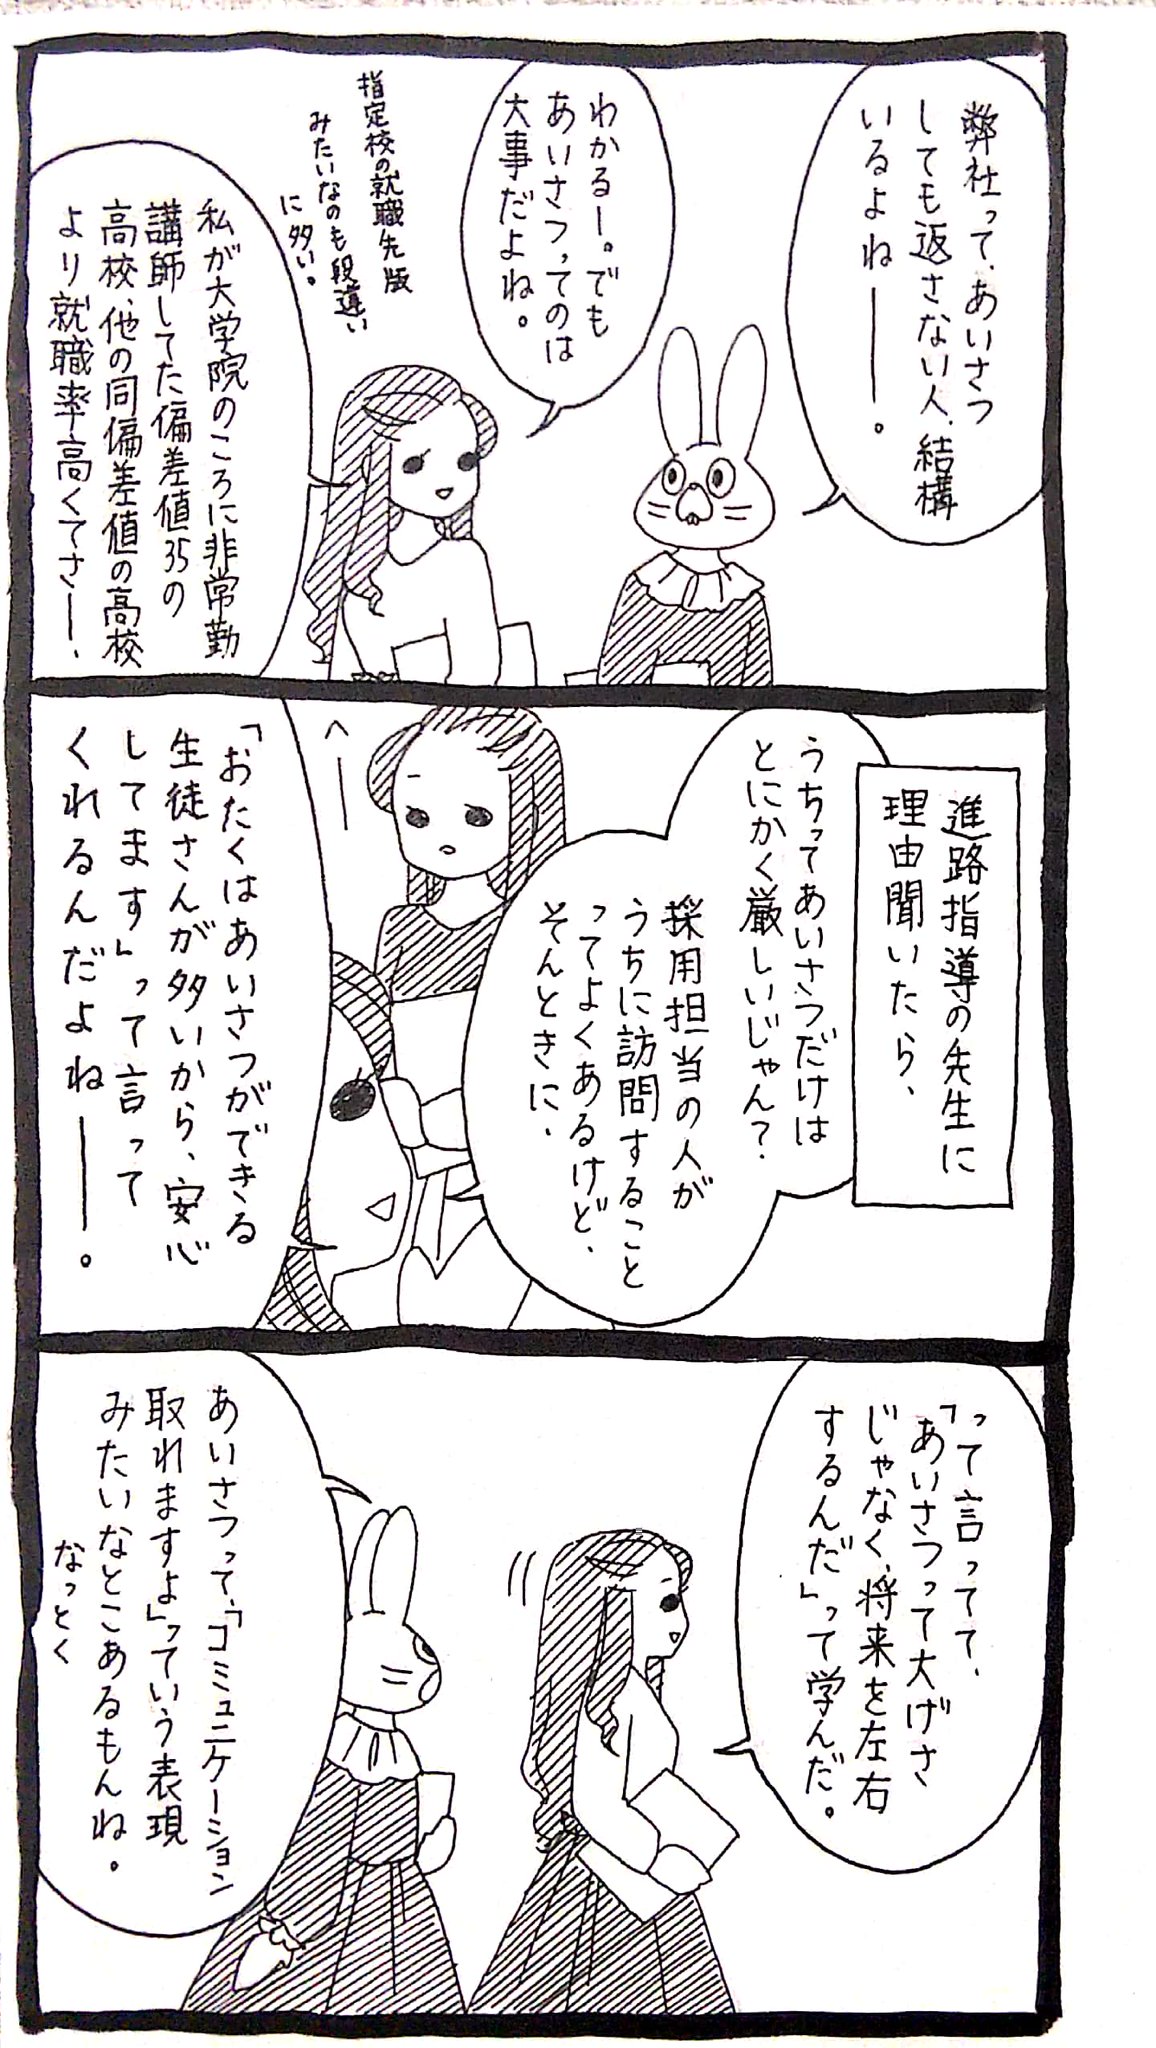 弊社って、あいさつ
しても返さない人、結構
いるよねーー。
わかるー。でも
あいさつってのは
大事だよね。
私が大学院のころに非常勤
講師してた偏差値35の
高校、他の同偏差値の高校
より就職率高くてさー、
指定校の就職先版
みたいなのも段違い
に多い。
進路指導の先生に
理由聞いたら、
うちってあいさつだけは
とにかく厳しいじゃん?
採用担当の人が
うちに訪問すること
ってよくあるけど、
そんときに、
へー
「おたくはあいさつができる
生徒さんが多いから、安心
してます」って言って
くれるんだよねーー。
って言ってて、
「あいさつって大げさ
じゃなく、将来を左右
するんだ」って学んだ。
あいさつって、「コミュニケーション
取れますよ」っていう表現
みたいなとこあるもんね。
なっとく